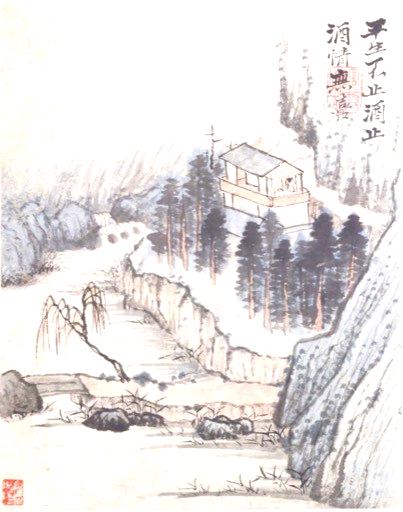 平生不止酒止
酒情無喜